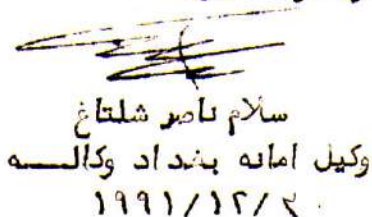 سلام ناصر شلتاغ
وكيل امانه بغداد وكالـــه
١٩٩١/١٢/٣٠